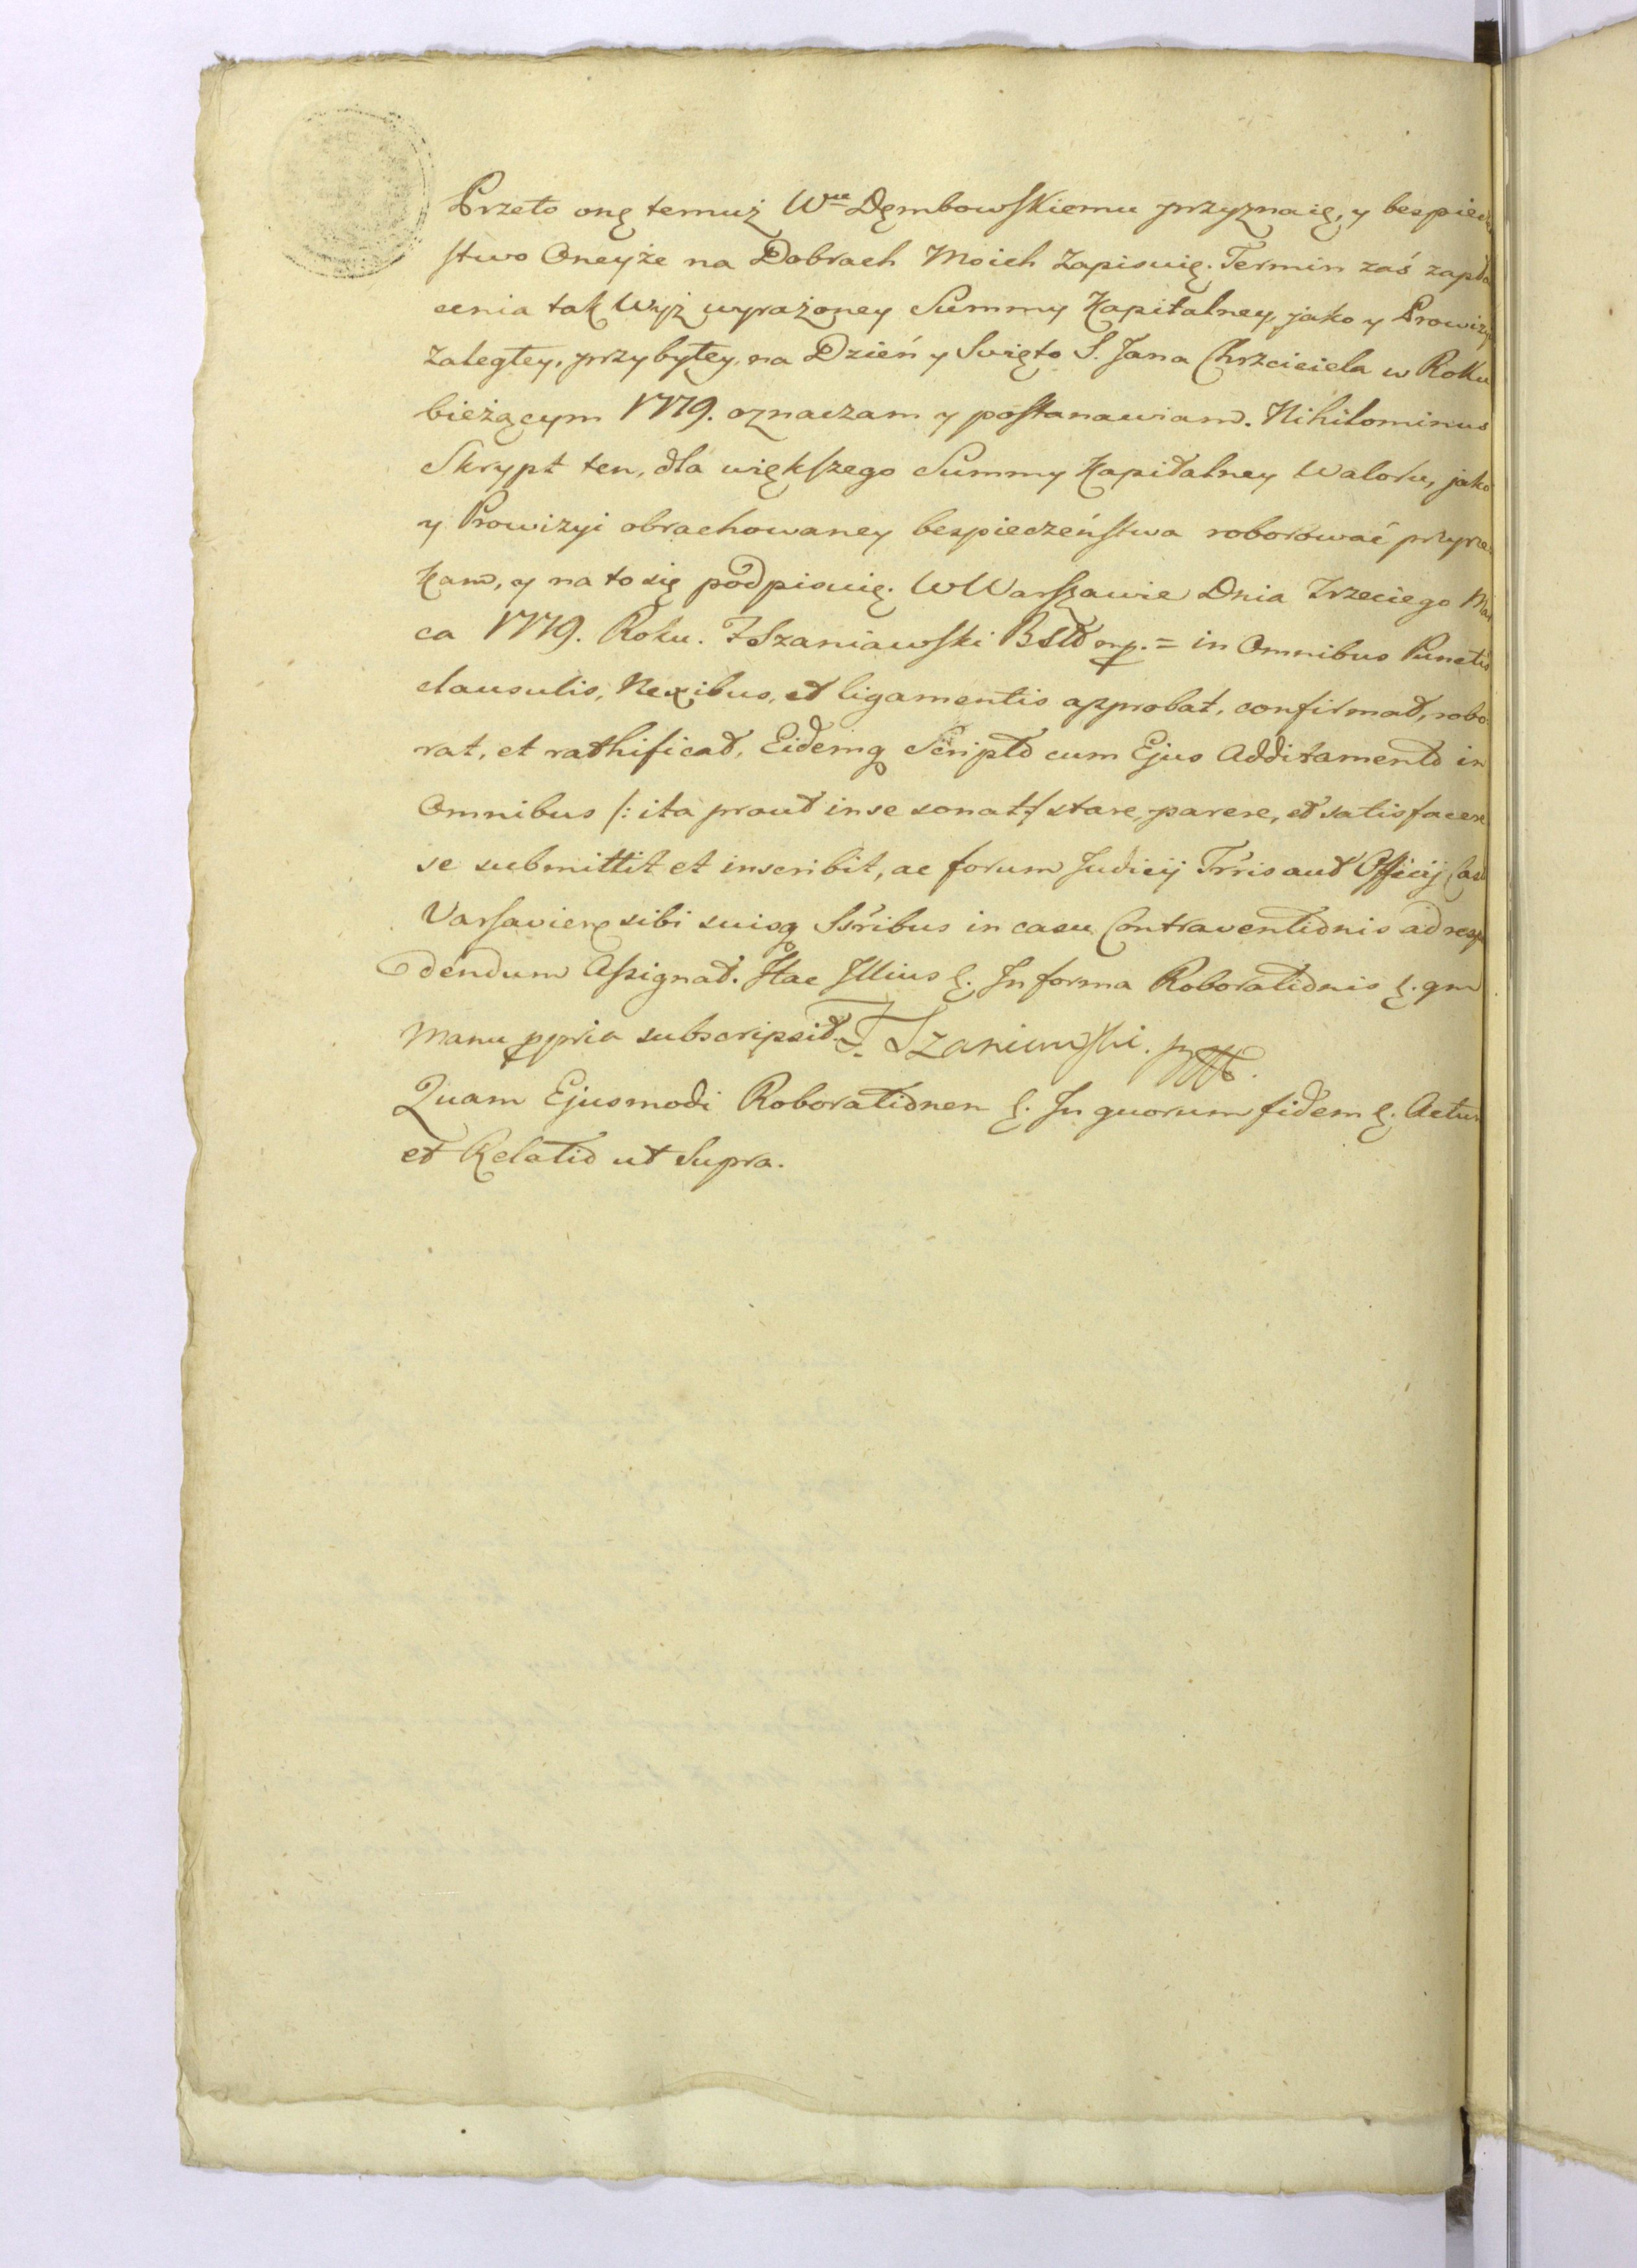 Przeto onę temuż Wue Dęmbowskiemu przyznaię, y bespiecz
stwo Oneyże na Dobrach Moich Zapisuię. Termin zaś zapła
cenia tak Wyż wyrażoney Summy Kapitalney, jako y Prowizyi
Zaległey, przybyłey, na Dzień y Swięto S. Jana Chrzciciela w Roku
bieżącym 1779. oznaczam y postanawiam. Nihilominus
Skrypt ten, dla większego Summy Kapitalney Waloru, jako
y Prowizyi obrachowaney bespieczeństwa roborować przyrze
kam, y na to się podpisuię. W Warszawie Dnia Trzeciego Mar
ca 1779. Roku. F Szaniawski BStd mp. = in Omnibus Punctis
clausulis, Nexibus, et ligamentis approbat, confirmat, robo
rat, et rathificat, Eidemq Scripto cum Ejus Additamento in
Omnibus /: ita prout in se sonat :/ stare, parere, et satisfacere
se submittit et inscribit, ac forum Judicij Trris aut Officij Cas
Varsavien sibi suisq Ssribus in casu Contraventionis ad respo
dendum Assignat. Hac Illius &. In forma Roborationis &. qm
Manu ppria subscripsit. F. Szaniawski. mp.
Quam Ejusmodi Roborationen &. In quorum fidem &. Actum
et Relatio ut Supra.